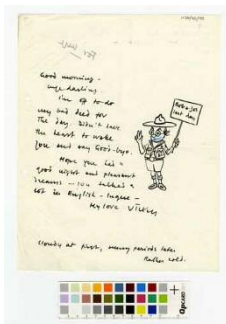 Good morning -
Inge darling.
I'm off to do
my good deed for
the day. Didn't have
the heart to wake
you and say Good-bye.
Hope you had a
good night and pleasant
dreams - you talked a
lot in English - Ingese -
My love
Cloudy at first, sunny periods later.
Rather cold.